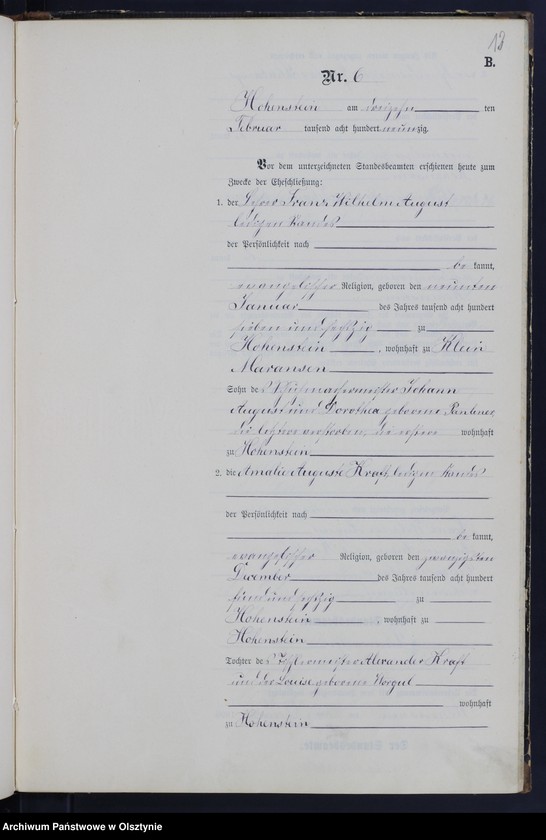 13
B.
Nr. 6
Hohenstein am dreizehn ten
Februar tausend acht hundert neunzig.
Vor dem unterzeichneten Standesbeamten erschienen heute zum
Zwecke der Eheschließung:
1. der Lehrer Franz Wilhelm August
ledigen Standes
der Persönlichkeit nach
be kannt,
evangelischer Religion, geboren den neunten
Januar des Jahres tausend acht hundert
sieben und sechszig zu
Hohenstein, wohnhaft zu Klein
Maransen
Sohn des Schuhmachermeister Johann
August und Dorothea geborene
die letztere verstorben, die erstere wohnhaft
zu Hohenstein
2. die Amalie Auguste Kraft, ledigen Standes
der Persönlichkeit nach
be kannt,
evangelischer Religion, geboren den zwanzigsten
December des Jahres tausend acht hundert
fünf und sechszig zu
Hohenstein, wohnhaft zu
Hohenstein
Tochter des Tischlermeister Alexander Kraft
und der Louise geborene Worgul
wohnhaft
zu Hohenstein
Archiwum Państwowe w Olsztynie